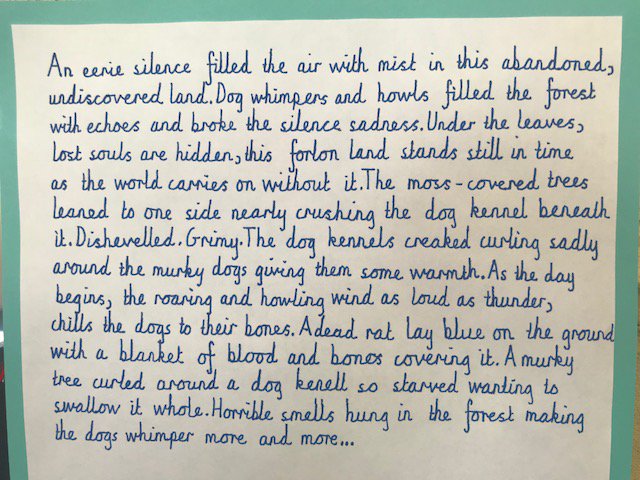 An eerie silence filled the air with mist in this abandoned,
undiscovered land. Dog whimpers and howls filled the forest
with echoes and broke the silence sadness. Under the leaves,
lost souls are hidden, this forlon land stands still in time
as the world carries on without it. The moss-covered trees
leaned to one side nearly crushing the dog kennel beneath
it. Dishevelled. Grimy. The dog kennels creaked curling sadly
around the murky dogs giving them some warmth. As the day
begins, the roaring and howling wind as loud as thunder,
chills the dogs to their bones. A dead rat lay blue on the ground
with a blanket of blood and bones covering it. A murky
tree curled around a dog kenell so starved wanting to
swallow it whole. Horrible smells hung in the forest making
the dogs whimper more and more...